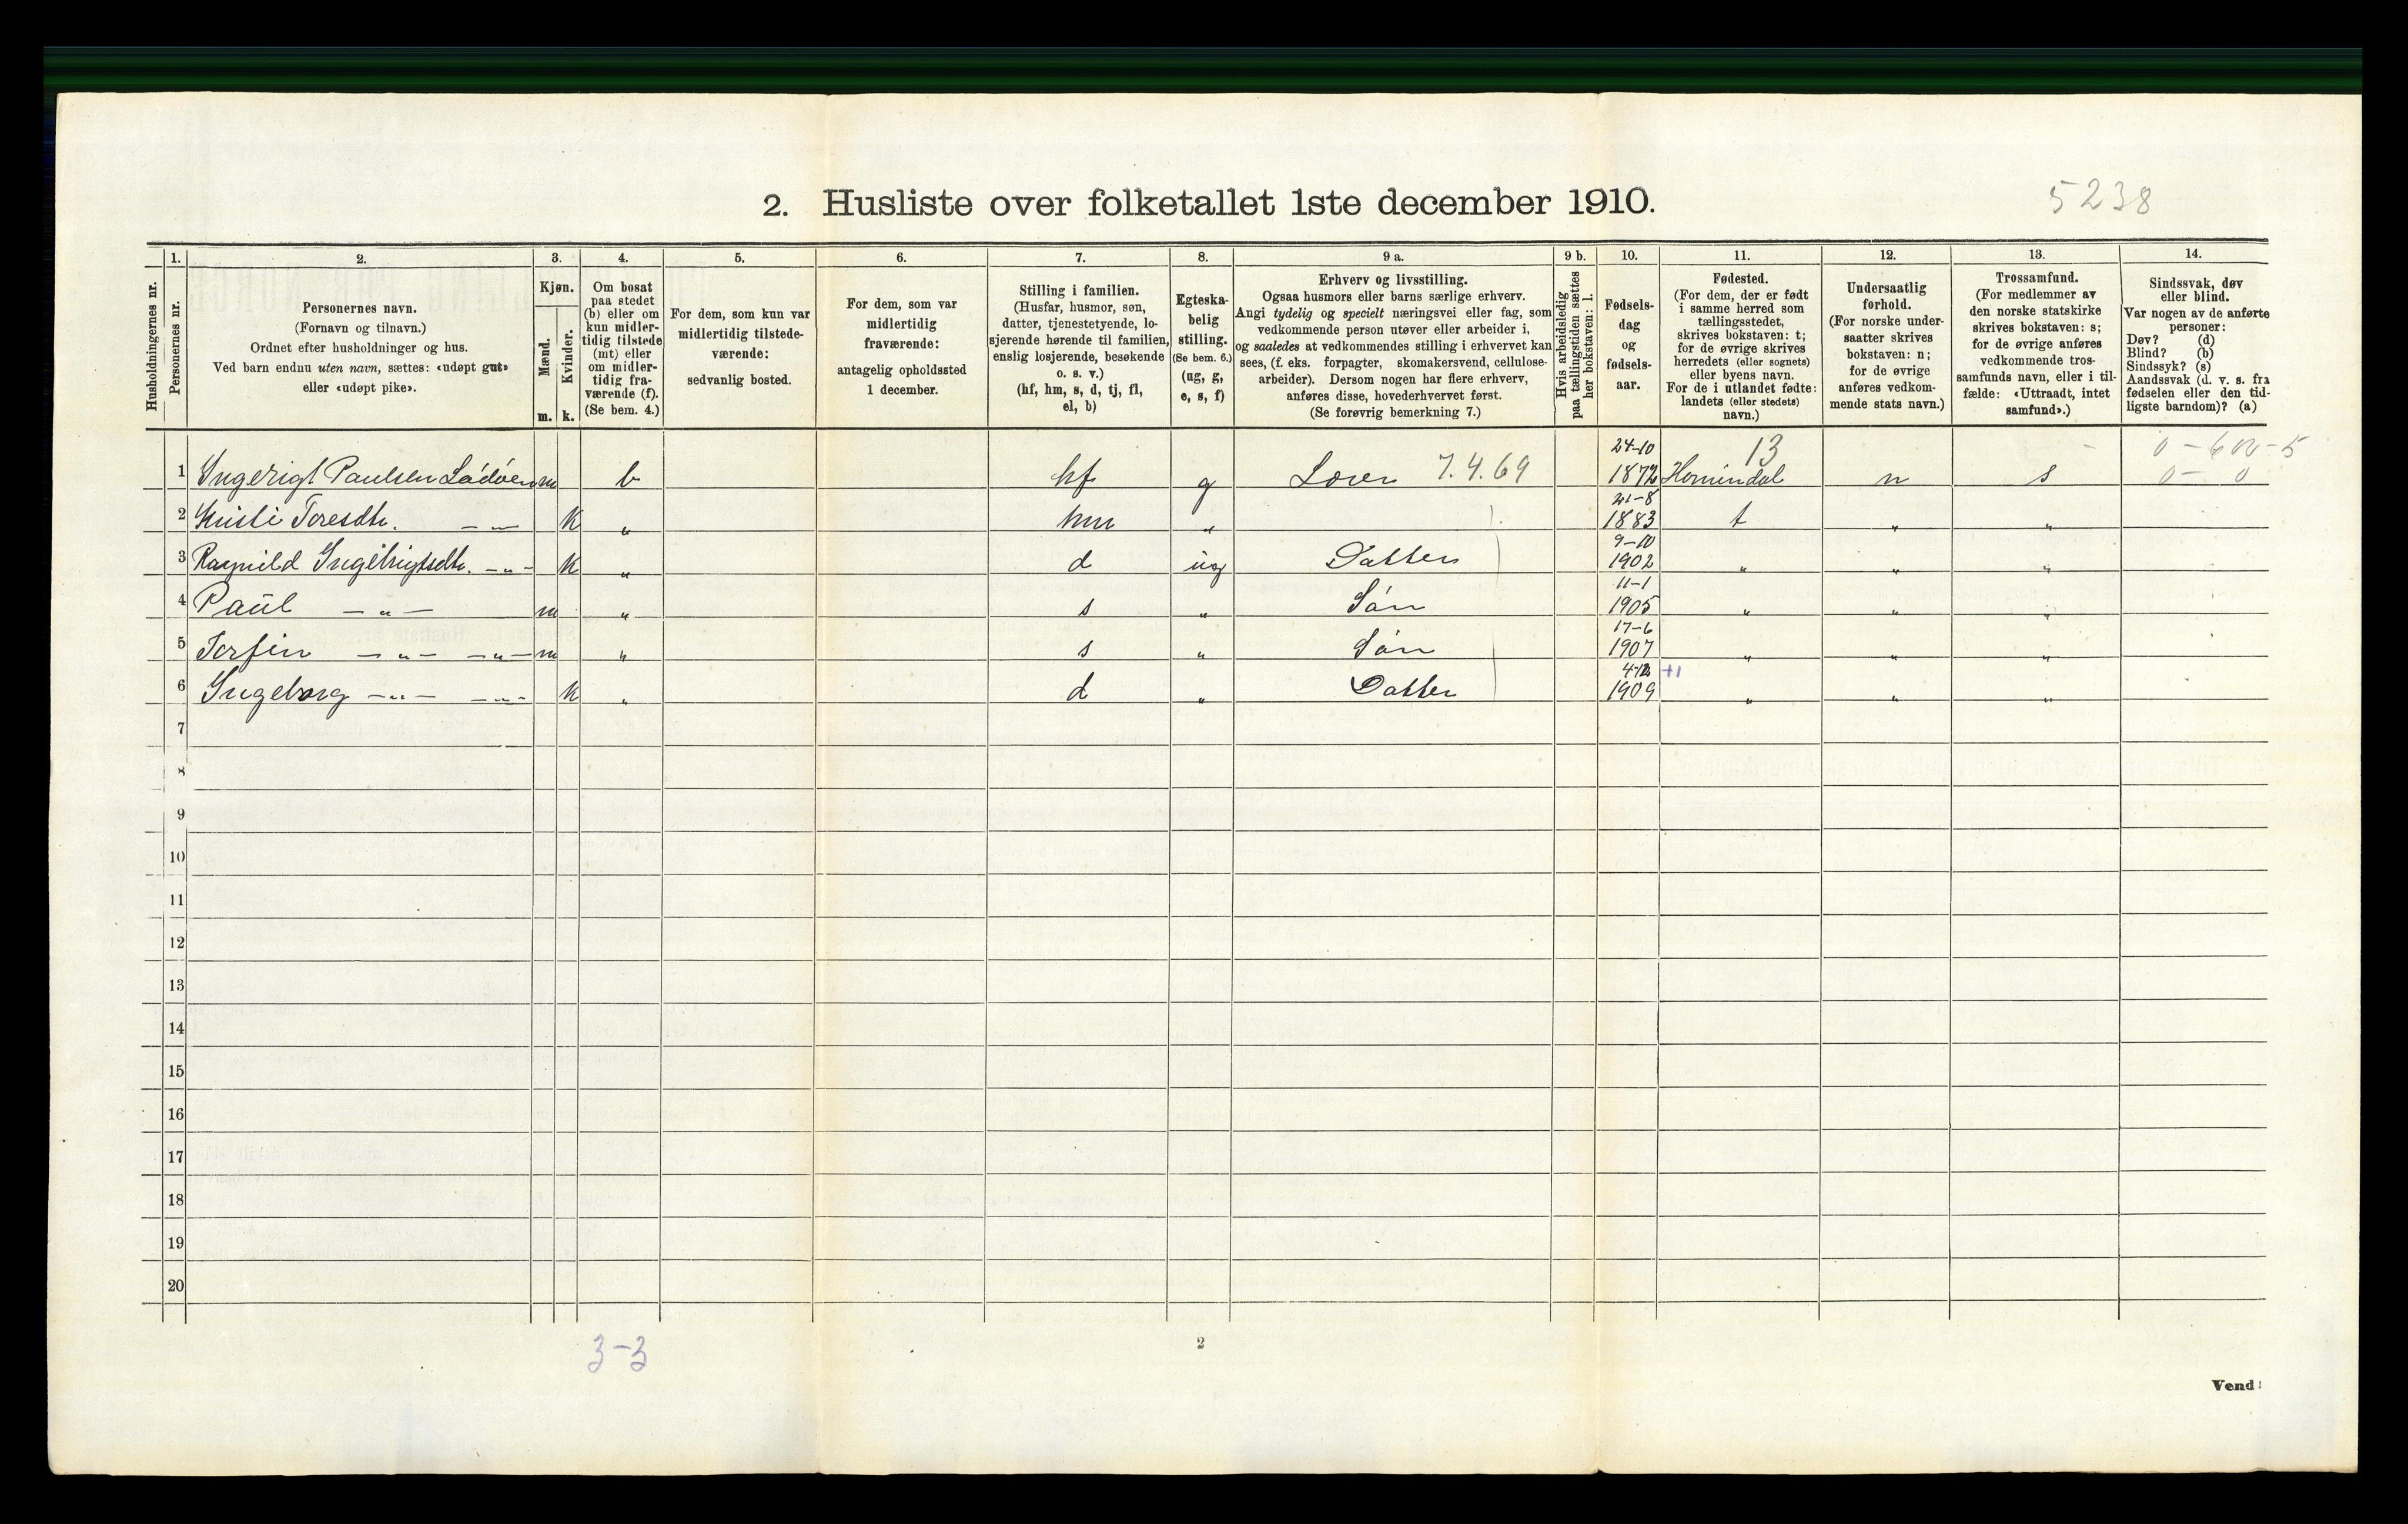 2. Husliste over folketallet 1ste december 1910.
5238
Husholdningernes nr.
1.
Personernes nr.
2.
Personernes navn.
(Fornavn og tilnavn.)
Ordnet efter husholdninger og hus.
Ved barn endnu uten navn, sættes: «udøpt gut»
eller «udøpt pike».
3.
Kjøn.
Mænd.
m.
Kvinder.
k.
4.
Om bosat
paa stedet
(b) eller om
kun midler-
tidig tilstede
(mt) eller
om midler-
tidig fra-
værende (f).
(Se bem. 4.)
5.
For dem, som kun var
midlertidig tilstede-
værende:
sedvanlig bosted.
6.
For dem, som var
midlertidig
fraværende:
antagelig opholdssted
1 december.
7.
Stilling i familien.
(Husfar, husmor, søn,
datter, tjenestetyende, lo-
sjerende hørende til familien,
enslig losjerende, besøkende
o. s. v.)
(hf, hm, s, d, tj, fl,
el, b)
8.
Egteska-
belig
stilling.
(Se bem. 6.)
(ug, g,
e, s, f)
9 a.
Erhverv og livsstilling.
Ogsaa husmors eller barns særlige erhverv.
Angi tydelig og specielt næringsvei eller fag, som
vedkommende person utøver eller arbeider i,
og saaledes at vedkommendes stilling i erhvervet kan
sees, (f. eks. forpagter, skomakersvend, cellulose-
arbeider). Dersom nogen har flere erhverv,
anføres disse, hovederhvervet først.
(Se forøvrig bemerkning 7.)
9 b.
Hvis arbeidsledig
paa tællingstiden sættes
her bokstaven: l.
10.
Fødsels-
dag
og
fødsels-
aar.
11.
Fødested.
(For dem, der er født
i samme herred som
tællingsstedet,
skrives bokstaven: t;
for de øvrige skrives
herredets (eller sognets)
eller byens navn.
For de i utlandet fødte:
landets (eller stedets)
navn.)
12.
Undersaatlig
forhold.
(For norske under-
saatter skrives
bokstaven: n;
for de øvrige
anføres vedkom-
mende stats navn.)
13.
Trossamfund.
(For medlemmer av
den norske statskirke
skrives bokstaven: s;
for de øvrige anføres
vedkommende tros-
samfunds navn, eller i til-
fælde: «Uttraadt, intet
samfund».)
14.
Sindssvak, døv
eller blind.
Var nogen av de anførte
personer:
Døv? (d)
Blind? (b)
Sindssyk? (s)
Aandssvak (d. v. s. fra
fødselen eller den tid-
ligste barndom)? (a)
24-10 13
1 Ingerigt Paulsen Lødøen m b hf g 7.4.69 1872 Hornindal n s 0 - 0
21-8
2 Kristi Toresdtr. — — k „ hm „ 1883 t „ „
9-10
3 Ragnild Ingebrigtsdtr. -„- k „ d ug Datter 1902 „ „ „
11-1
4 Paul -„- m „ s „ Søn 1905 „ „ „
17-6
5 Torfin -„- -„- m „ s „ Søn 1907 „ „ „
4-12 +1
6 Ingeborg -„- -„- k „ d „ Datter 1909 „ „ „
7
8
9
10
11
12
13
14
15
16
17
18
19
20
3-3
2
Vend!